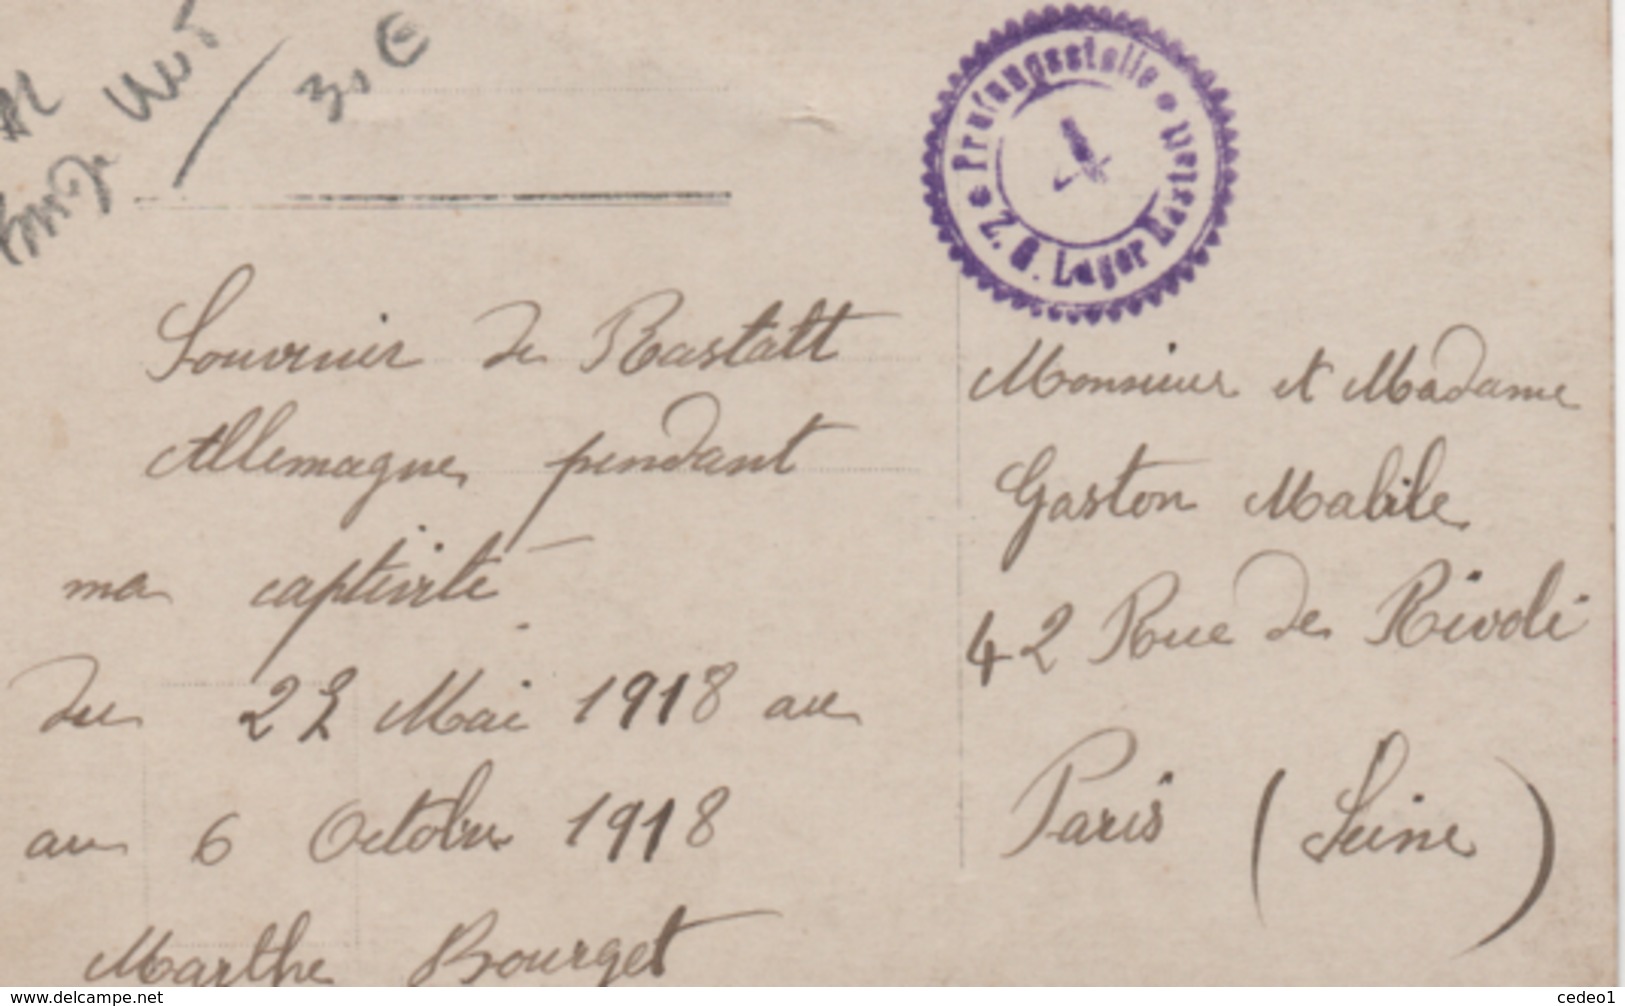 30 €
Prüfungsstelle
Z. G. Lager Rastatt
Souvenir de Rastatt
Allemagne pendant
ma captivité
du 22 Mai 1918 au
au 6 Octobre 1918
Marthe Bourget
Monsieur et Madame
Gaston Mabile
42 Rue de Rivoli
Paris (Seine)
www.delcampe.net
cedeo1